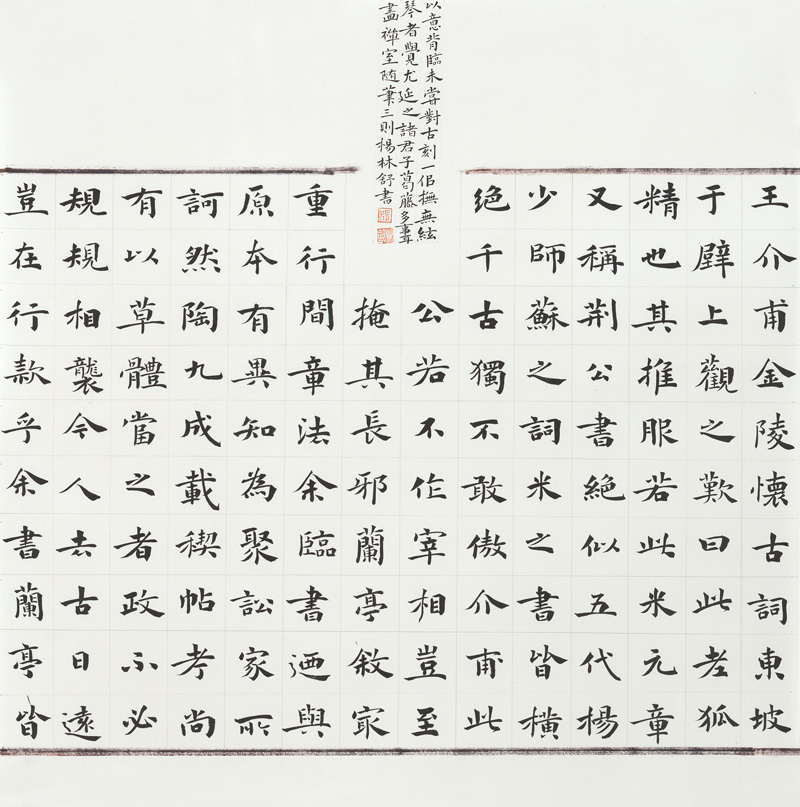 王介甫金陵懷古詞東坡
于壁上觀之歎曰此老狐
精也其推服若此米元章
又稱荊公書絕似五代楊
少師蘇之詞米之書皆橫
絕千古獨不敢傲介甫此
公若不作宰相豈至
掩其長邪蘭亭敘冣
重行間章法余臨書迺與
原本有異知為聚訟家所
訶然陶九成載禊帖考尚
有以草體當之者政不必
規規相襲今人去古日遠
豈在行款乎余書蘭亭皆
以意背臨未嘗對古刻一佀撫無絃
琴者覺尤延之諸君子葛藤多事耳
畫禪室随筆三則楊林舒書